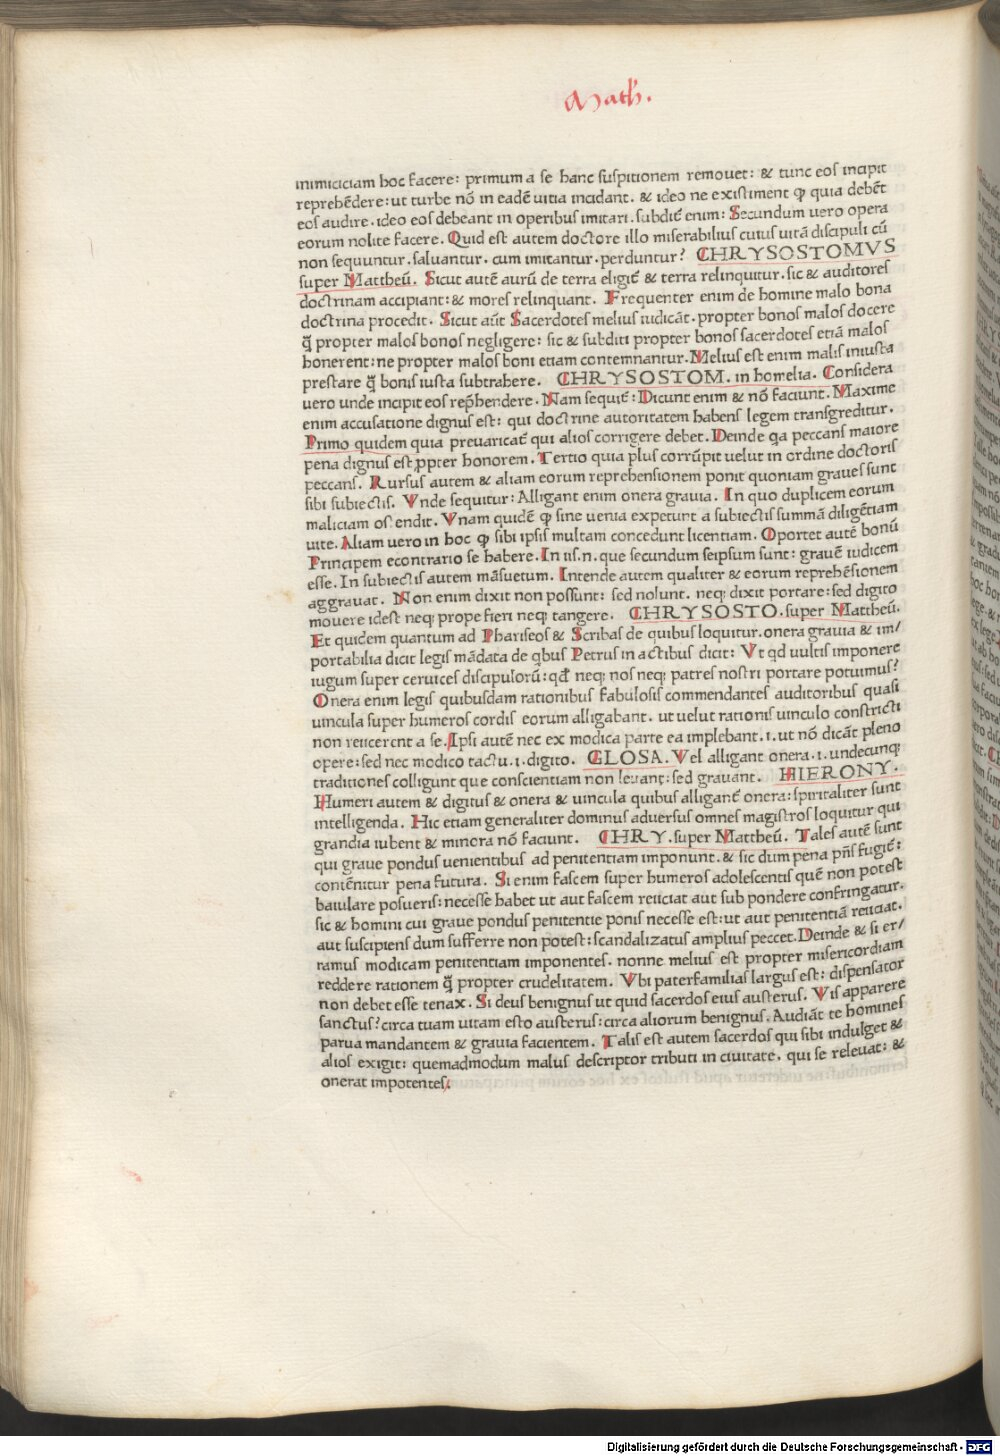 Math.
inimiciciam hoc facere: primum a se hanc suspitionem remouet: & tunc eos incipit
reprehēdere: ut turbe nō in eadē uitia incidant. & ideo ne existiment ꝙ quia debēt
eos audire. ideo eos debeant in operibus imitari. subdit̄ enim: Secundum uero opera
eorum nolite facere. Quid est autem doctore illo miserabilius cuius uitā discipuli cū
non sequuntur. saluantur. cum imitantur. perduntur? CHRYSOSTOMVS
super Mattheū. Sicut autē aurū de terra eligit̄ & terra relinquitur. sic & auditores
doctrinam accipiant: & mores relinquant. Frequenter enim de homine malo bona
doctrina procedit. Sicut aūt Sacerdotes melius iudicāt. propter bonos malos docere
q̄ propter malos bonos negligere: sic & subditi propter bonos sacerdotes etiā malos
honerent: ne propter malos boni etiam contemnantur. Melius est enim malis iniusta
prestare q̄ bonis iusta subtrahere. CHRYSOSTOM. in homelia. Considera
uero unde incipit eos rep̄hendere. Nam sequit̄: Dicunt enim & nō faciunt. Maxime
enim accusatione dignus est: qui doctrine autoritatem habens legem transgreditur.
Primo quidem quia preuaricat̄ qui alios corrigere debet. Deinde qa peccans maiore
pena dignus est ꝓpter honorem. Tertio quia plus corrūpit uelut in ordine doctoris
peccans. Rursus autem & aliam eorum reprehensionem ponit quoniam graues sunt
sibi subiectis. Vnde sequitur: Alligant enim onera grauia. In quo duplicem eorum
maliciam os endit. Vnam quidē ꝙ sine uenia expetunt a subiectis summā diligētiam
uite. Aliam uero in hoc ꝙ sibi ipsis multam concedunt licentiam. Oportet autē bonū
Principem econtrario se habere. In iis .n. que secundum seipsum sunt: grauē iudicem
esse. In subiectis autem māsuetum. Intende autem qualiter & eorum reprehēsionem
aggrauat. Non enim dixit non possunt: sed nolunt. neq; dixit portare: sed digito
mouere idest neq; prope fieri neq; tangere. CHRYSOSTO. super Mattheū.
Et quidem quantum ad Phariseos & Scribas de quibus loquitur. onera grauia & im/
portabilia dicit legis mādata de qbus Petrus in actibus dicit: Vt qd uultis imponere
iugum super ceruices discipulorū: qd̄ neq; nos neq; patres nostri portare potuimus?
Onera enim legis quibusdam rationibus fabulosis commendantes auditoribus quasi
uincula super humeros cordis eorum alligabant. ut uelut rationis uinculo constricti
non reiicerent a se. Ipsi autē nec ex modica parte ea implebant. i. ut nō dicāt pleno
opere: sed nec modico tactu. i. digito. GLOSA. Vel alligant onera. i. undecunq;
traditiones colligunt que conscientiam non leuant: sed grauant. HIERONY.
Humeri autem & digitus & onera & uincula quibus alligant̄ onera: spiritaliter sunt
intelligenda. Hic etiam generaliter dominus aduersus omnes magistros loquitur qui
grandia iubent & minora nō faciunt. CHRY. super Mattheū. Tales autē sunt
qui graue pondus uenientibus ad penitentiam imponunt. & sic dum pena pn̄s fugit̄:
contēnitur pena futura. Si enim fascem super humeros adolescentis quē non potest
baiulare posueris: necesse habet ut aut fascem reiiciat aut sub pondere confringatur.
sic & homini cui graue pondus penitentie ponis necesse est: ut aut penitentiā reiiciat.
aut suscipiens dum sufferre non potest: scandalizatus amplius peccet. Deinde & si er/
ramus modicam penitentiam imponentes. nonne melius est propter misericordiam
reddere rationem q̄ propter crudelitatem. Vbi paterfamilias largus est: dispensator
non debet esse tenax. Si deus benignus ut quid sacerdos eius austerus. Vis apparere
sanctus? circa tuam uitam esto austerus: circa aliorum benignus. Audiāt te homines
parua mandantem & grauia facientem. Talis est autem sacerdos qui sibi indulget &
alios exigit: quemadmodum malus descriptor tributi in ciuitate. qui se releuat: &
onerat impotentes.
Digitalisierung gefördert durch die Deutsche Forschungsgemeinschaft - DFG